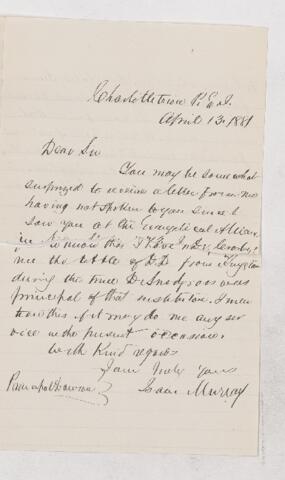 Charlottetown P. E. I.
April 13. 1881
Dear Sir
You may be somewhat
surprized to receive a letter from me
having not spoken to you since I
saw you at the Evangelical Alliance
in
me the title of D.D from Kingston
during the time Dr Snodgrass was
principal of that institution. I men
tion this if it may do me any ser
vice in the present occasion.
With Kind regards
I am truly yours
Isaac Murray
Principal Dawson